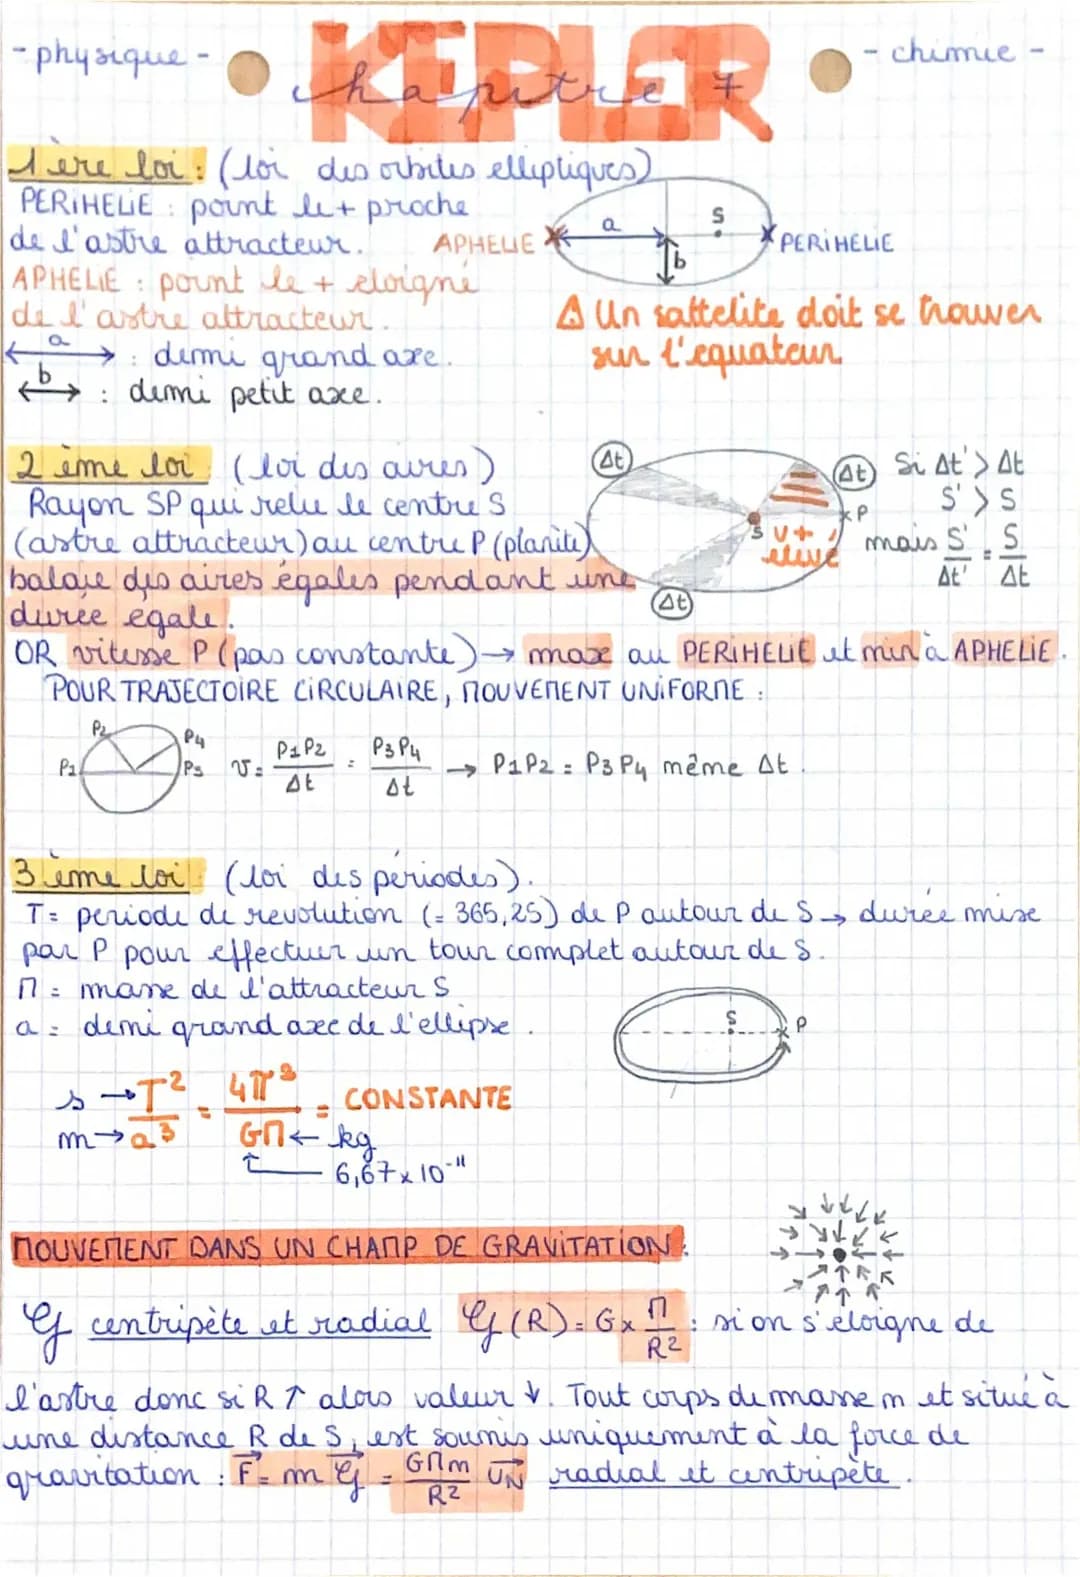 - physique -
KEPLER
chapitre 7
- chimie -
1ère loi : (loi des orbites elliptiques)
PERIHELIE : point le + proche
de l'astre attracteur.
APHELIE : point le + eloigné
de l'astre attracteur.
a : demi grand axe.
b : demi petit axe.
APHELIE a b S PERIHELIE
⚠ Un sattelite doit se trouver
sur l'equateur.
2 ème loi (loi des aires)
Rayon SP qui relie le centre S
(astre attracteur) au centre P (planète)
balaie des aires égales pendant une
durée égale.
Δt Δt Δt S P
v + élevé
Si Δt' > Δt
S' > S
mais S'/Δt' = S/Δt
OR vitesse P (pas constante) → max au PERIHELIE et min à APHELIE.
POUR TRAJECTOIRE CIRCULAIRE, MOUVEMENT UNIFORME :
P1 P2 P4 P3
v = P1P2/Δt = P3P4/Δt → P1P2 = P3P4 même Δt.
3 ème loi : (loi des périodes).
T = periode de revolution (= 365,25) de P autour de S → durée mise
par P pour effectuer un tour complet autour de S.
M = masse de l'attracteur S
a = demi grand axe de l'ellipse.
S P
s → T²/a³ ← m = 4π³/GM = CONSTANTE
← kg
6,67 x 10⁻¹¹
MOUVEMENT DANS UN CHAMP DE GRAVITATION :
G centripète et radial G(R) = G x M/R² : si on s'éloigne de
l'astre donc si R ↑ alors valeur ↓. Tout corps de masse m et situé à
une distance R de S, est soumis uniquement à la force de
gravitation : F = m G = GMm/R² UN radial et centripète.